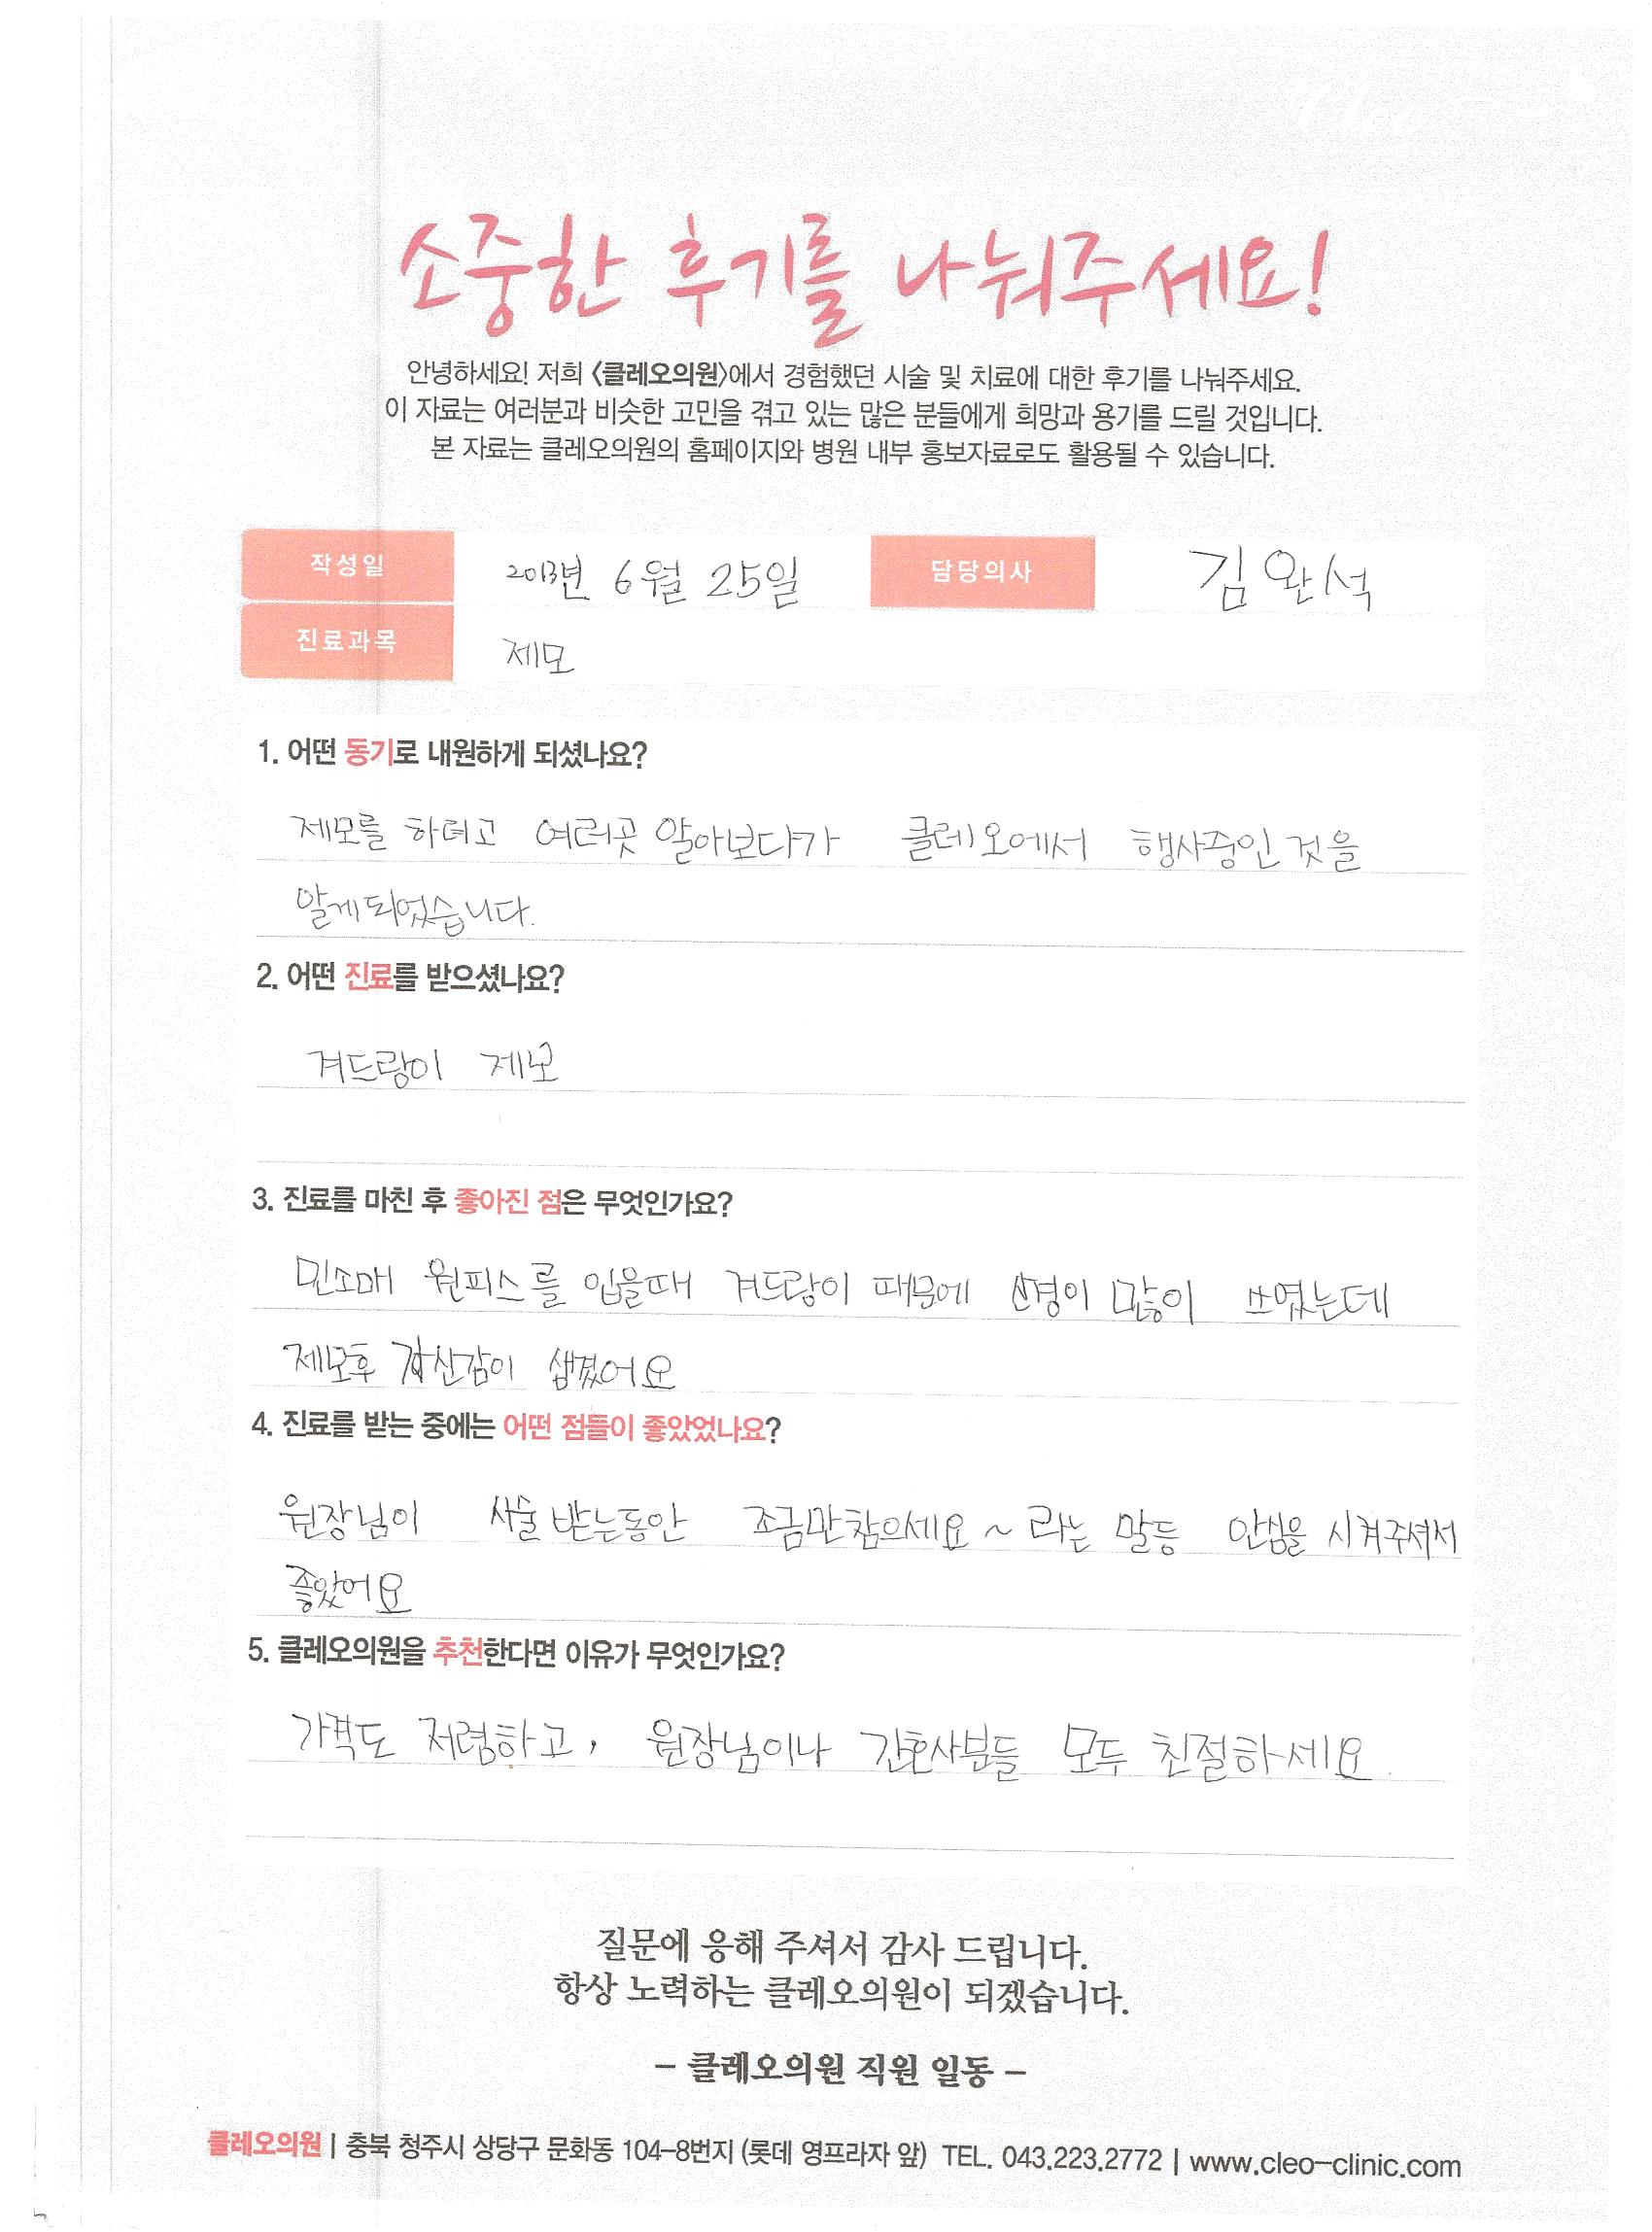 Cleo
소중한 후기를 나눠주세요!
안녕하세요! 저희 <클레오의원>에서 경험했던 시술 및 치료에 대한 후기를 나눠주세요.
이 자료는 여러분과 비슷한 고민을 겪고 있는 많은 분들에게 희망과 용기를 드릴 것입니다.
본 자료는 클레오의원의 홈페이지와 병원 내부 홍보자료로도 활용될 수 있습니다.
작성일 2013년 6월 25일 담당의사 김완석
진료과목 제모
1. 어떤 동기로 내원하게 되셨나요?
제모를 하려고 여러곳 알아보다가 클레오에서 행사중인 것을
알게되었습니다.
2. 어떤 진료를 받으셨나요?
겨드랑이 제모
3. 진료를 마친 후 좋아진 점은 무엇인가요?
민소매 원피스를 입을때 겨드랑이 때문에 신경이 많이 쓰였는데
제모후 자신감이 생겼어요
4. 진료를 받는 중에는 어떤 점들이 좋았었나요?
원장님이 시술 받는동안 조금만참으세요~ 라는 말등 안심을 시켜주셔서
좋았어요
5. 클레오의원을 추천한다면 이유가 무엇인가요?
가격도 저렴하고, 원장님이나 간호사분들 모두 친절하세요.
질문에 응해 주셔서 감사 드립니다.
항상 노력하는 클레오의원이 되겠습니다.
- 클레오의원 직원 일동 -
클레오의원 | 충북 청주시 상당구 문화동 104-8번지 (롯데 영프라자 앞) TEL. 043.223.2772 | www.cleo-clinic.com